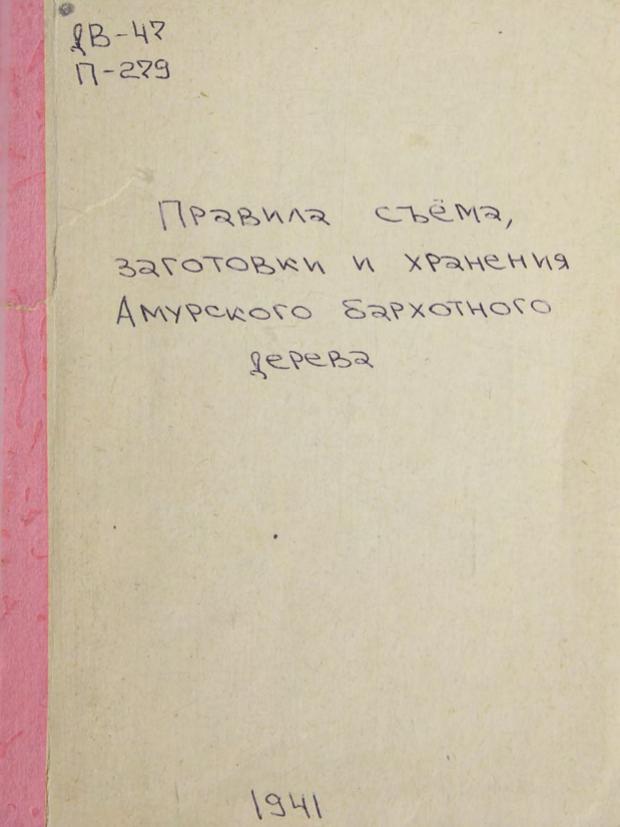 ДВ-47
П-279
Правила съёма,
заготовки и хранения
Амурского бархотного
дерева
1941